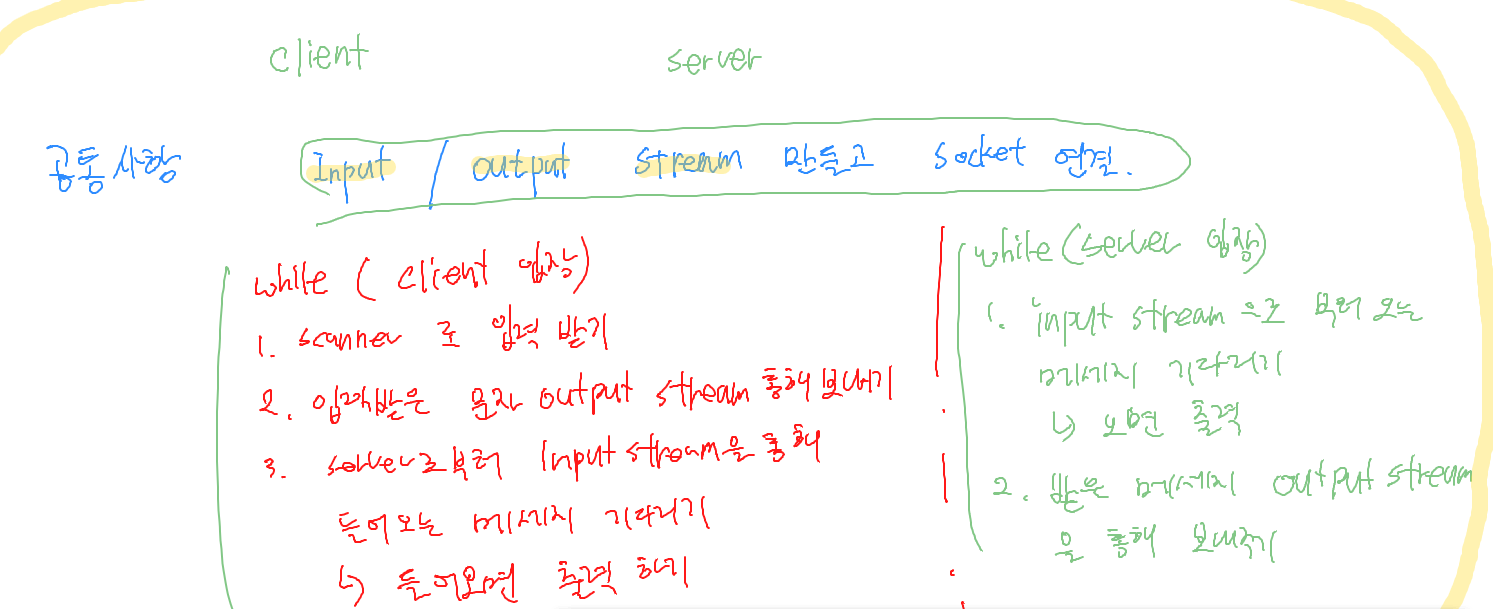 client server
공통사항 Input / output stream 만들고 socket 연결.
while ( client 입장)
1. scanner 로 입력 받기
2. 입력받은 문자 output stream 통해 보내기
3. server로부터 Input stream을 통해
들어오는 메세지 기다리기
↳ 들어오면 출력 하기
while (server 입장)
1. input stream 으로 부터 오는
메세지 기다리기
↳ 오면 출력
2. 받은 메세지 output stream
을 통해 보내주기